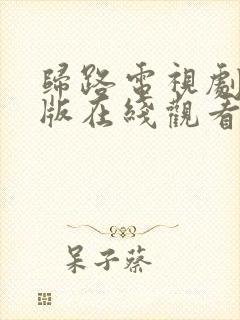 歸路電視劇
版在綫觀看
呆子蔡